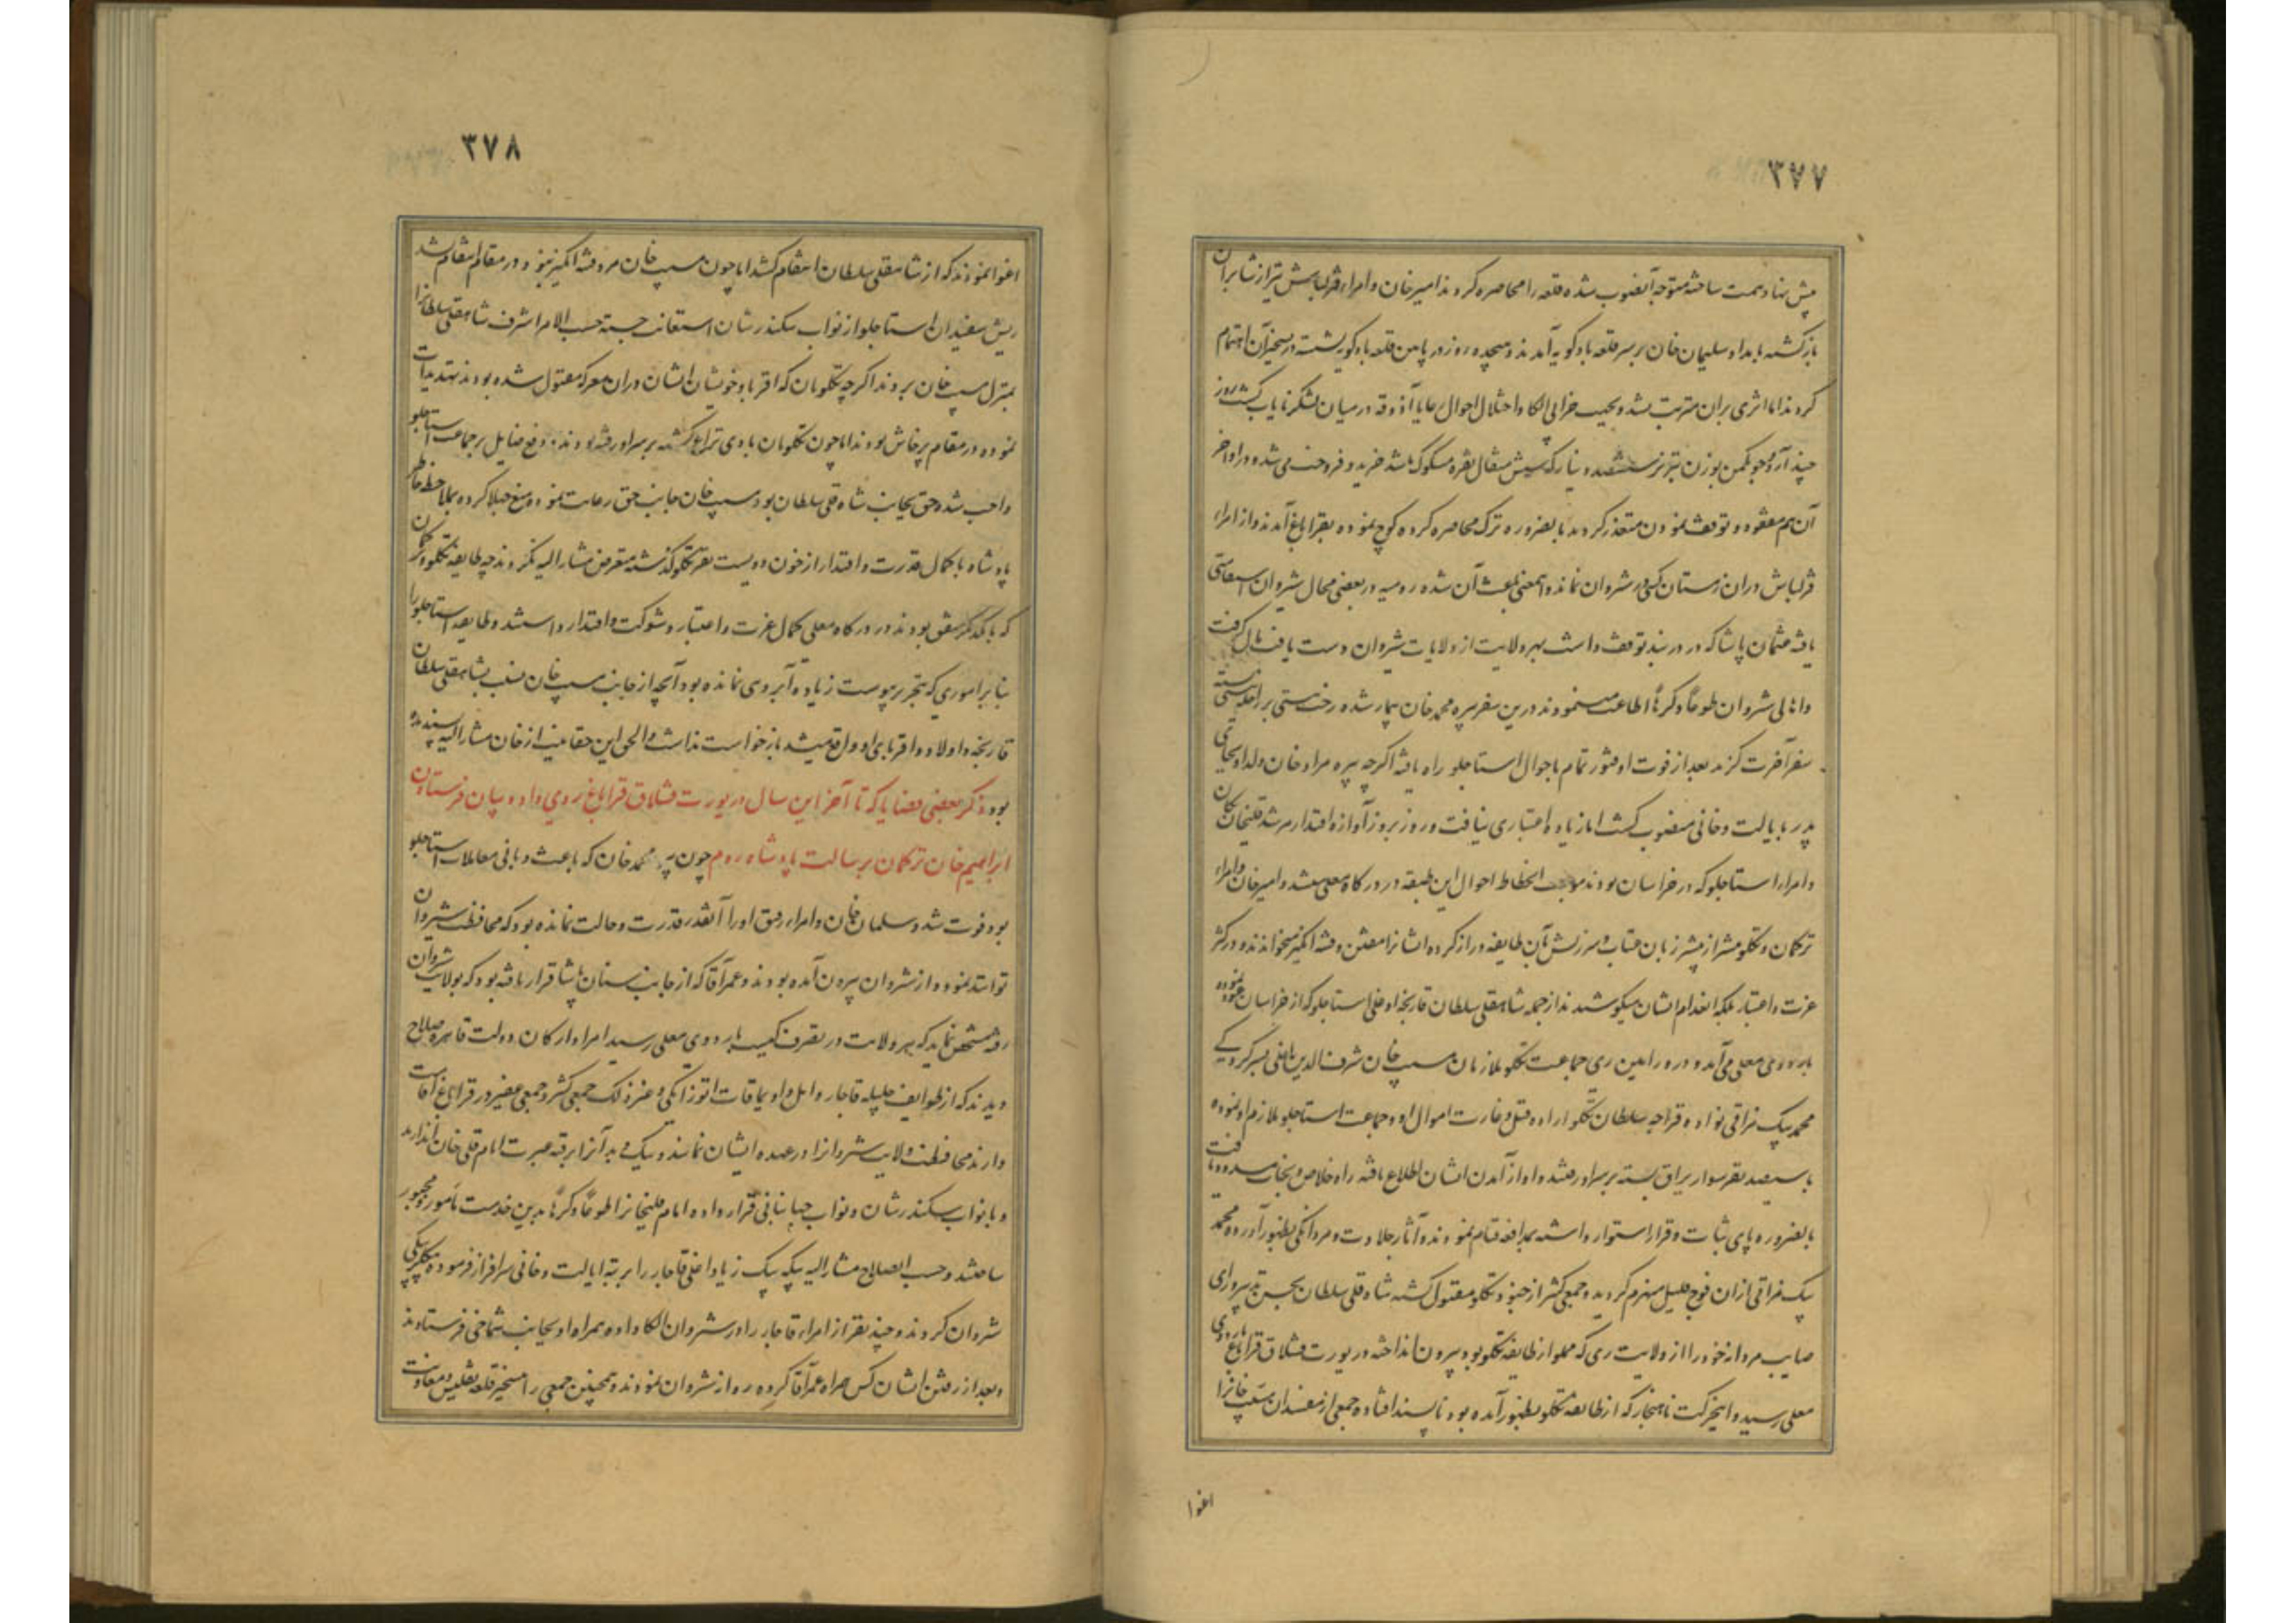 ۳۷۷
پیش نهاد همت ساخته متوجه آنصوب شده قلعه را محاصره کردند امیرخان و امراء قزلباش نیز از شابران
بازگشته بامداد سلیمان خان بر سر قلعه بادکوبه آمدند و هیجده روز در پایین قلعه بادکوبه نشسته در تسخیر آن اهتمام
کردند اما اثری بران مترتب نشد و بجهت خرابی الکا و اختلال احوال رعایا آذوقه در میان لشکر نایاب گشت روز
چند آرد جو یکمن بوزن تبریز بششصد دینار که شش مثقال نقره مسکوک باشد خرید و فروخت می شد و در اواخر
آن هم مفقود و توقف نمودن متعذر گردید بالضروره ترک محاصره کرده کوچ نموده بقراباغ آمدند و از امراء
قزلباش دران زمستان کسی در شروان نماند و اینمعنی باعث آن شده رومیه در بعضی محال شیروان استقامتی
یافته عثمان پاشا که در دربند توقف داشت بهر ولایت از ولایات شیروان دست یافت مال گرفت
و اهالی شروان طوعاً و کرهاً اطاعت مینمودند درین سفر پیره محمد خان بیمار شده رخت هستی بر بسته
سفر آخرت گزید بعد از فوت او فتور تمام باحوال استاجلو راه یافته اگرچه پیره مراد خان ولد او بجای
پدر بایالت و خانی منصوب گشت اما زیاده اعتباری نیافت و روز بروز آوازه اقتدار مرشد قلیخان
و امراء استاجلو که در خراسان بودند موجب انحطاط احوال این طبقه در درگاه معلی میشد و امیرخان و امراء
ترکمان و تکلو بیشتر از پیشتر زبان عتاب و سرزنش آن طایفه دراز کرده ایشانرا مفتن و فتنه انگیز میخواندند و در کسر
عزت و اعتبار بلکه انعدام ایشان میکوشیدند از جمله شاهقلی سلطان قارنجه اوغلی استاجلو که از خراسان
باردوی معلی می آمد و در ورامین ری جماعت تکلو ملازمان مسیب خان شرف الدین اوغلی بسرکردگی
محمد بیک نراقی نواده قراجه سلطان تکلو اراده قتل و غارت اموال او و جماعت استاجلو ملازم او نموده
با سیصد نفر سوار یراق بسته بر سر او رفتند و او از آمدن ایشان اطلاع یافته راه خلاص و نجات مسدود یافت
بالضروره پای ثبات و قرار استوار داشته بمدافعه قیام نمودند و آثار جلادت و مردانگی بظهور آورده محمد
بیک نراقی ازان فوج قلیل منهزم گردید و جمعی کثیر از جنود تکلو مقتول گشته شاه قلی سلطان بحسن تدبیر و رای
صایب مردانه خود را از ولایت ری که مملو از طایفه تکلو بود بیرون انداخته در یورت قشلاق قراباغ باردوی
معلی رسید و اینحرکت ناهنجار که از طایفه تکلو بظهور آمده بود ناپسند افتاده جمعی از مفسدان مسیب خانرا
اغوا
۳۷۸
اغوا نمودند که از شاهقلی سلطان انتقام کشد اما چون مسیب خان مرد فتنه انگیز نبود در مقام انتقام نشد
ریش سفیدان استاجلو از نواب سکندرشان استعانت جسته حسب الامر اشرف شاهقلی سلطانرا
بمنزل مسیب خان بردند اگرچه تکلویان که اقربا و خویشان ایشان دران معرکه مقتول شده بودند تهدیدات
نموده در مقام پرخاش بودند اما چون تکلویان بادی نزاع گشته بر سر او رفته بودند و دفع صایل بر جماعت استاجلو
واجب شد و حق بجانب شاه قلی سلطان بود مسیب خان جانب حق رعایت نموده منع جهلا کرده بملاحظه خاطر
پادشاه با کمال قدرت و اقتدار از خون دویست نفر تکلو گذشته متعرض مشارالیه نگردید چه طایفه تکلو و ترکمان
که با یکدیگر متفق بودند در درگاه معلی کمال عزت و اعتبار و شوکت و اقتدار داشتند و طایفه استاجلو را
بنابر اموری که بتحریر پیوست زیاده آبروی نمانده بود آنچه از جانب مسیب خان نسبت بشاهقلی سلطان
قارنجه و اولاد و اقربای او واقع میشد بازخواست نداشت و الحق این حقانیت از خان مشارالیه پسندیده
بود ذکر بعضی قضایا که تا آخر این سال در یورت قشلاق قراباغ روی داده و بیان فرستادن
ابراهیم خان ترکمان برسالت پادشاه روم چون پیره محمد خان که باعث و بانی معاملات استاجلو
بود فوت شد و سلمان خان و امراء رفیق او را آنقدر قدرت و حالت نمانده بود که محافظت شیروان
توانند نمود و از شروان بیرون آمده بودند و عمر آقا که از جانب سنان پاشا قرار یافته بود که بولایت شروان
رفته مشخص نماید که بهر ولایت در تصرف کیست باردوی معلی رسید امرا و ارکان دولت قاهره صلاح
دیدند که از طوایف جلیله قاجار و ایل و اویماقات اتوزایکی و غیر ذلک جمعی کثیر و جمعی غفیر در قراباغ اقامت
دارند محافظت ولایت شروانرا در عهده ایشان نمایند و بیک می به آنرا برقبه عبرت امام قلی خان اندازند
و با نواب سکندرشان و نواب جهانبانی قرار داده امام قلیخانرا طوعاً و کرهاً بدین خدمت مأمور و مجبور
ساختند و حسب الصلاح مشارالیه پیکر بیک زیاد اغلی قاجار را برتبه ایالت و خانی سرافراز فرموده بیگلربیگی
شروان کردند و چند نفر از امراء قاجار را در شروان الکا داده همراه او بجانب شماخی فرستادند
و بعد از رفتن ایشان کس همراه عمر آقا کرده روانه شروان نمودند و همچنین جمعی را بتسخیر قلعه تفلیس و معاونت